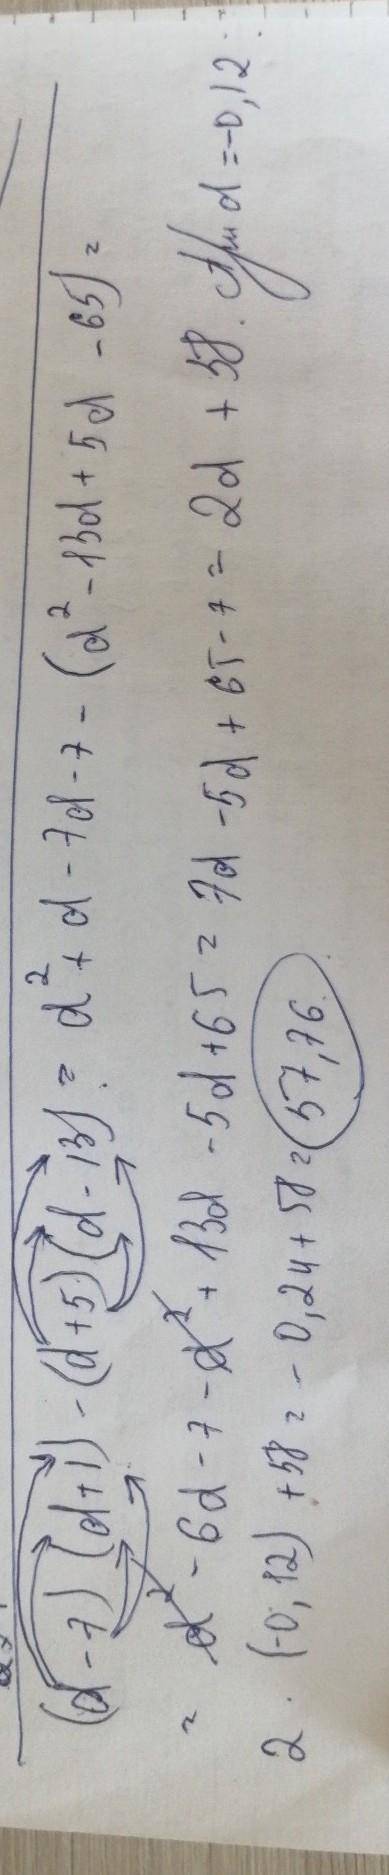 (d-7)(d+1)-(d+5)(d-13)= d²+d-7d-7-(d²-13d+5d-65)=
= d²-6d-7-d²+13d-5d+65= 7d-5d+65-7= 2d+58. При d=-0,12:
2·(-0,12)+58=-0,24+58=57,76.